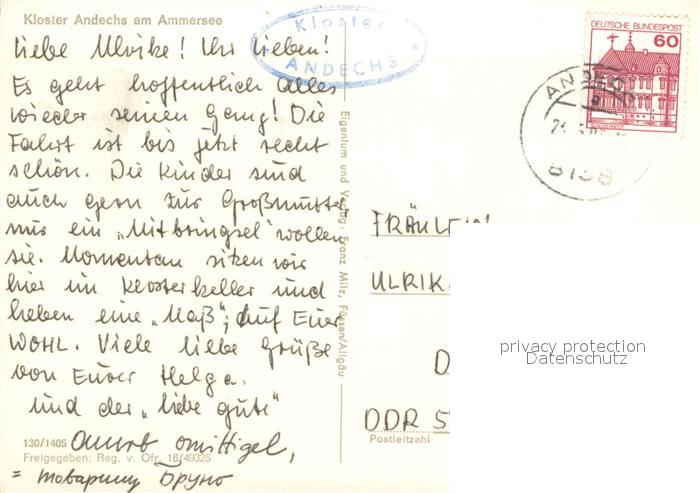 Kloster Andechs am Ammersee
Kloster
ANDECHS
DEUTSCHE BUNDESPOST
60
8138
Liebe Ulrike! Ihr Lieben!
Es geht hoffentlich alles
wieder seinen Gang! Die
Fahrt ist bis jetzt recht
schön. Die Kinder sind
auch gern zur Großmutter
nur ein „Mitbringsel" wollen
sie. Momentan sitzen wir
hier im Klosterkeller und
heben eine „Maß"; Auf Euer
WOHL. Viele liebe Grüße
von Eurer Helga.
und der „liebe gute"
= товарищ Бруно
130/1405
Freigegeben: Reg. v. Ofr. 16/49325
Eigentum und Verlag: Franz Milz, Füssen/Allgäu
FRÄULEIN
ULRIK
D
DDR 5
Postleitzahl
privacy protection
Datenschutz